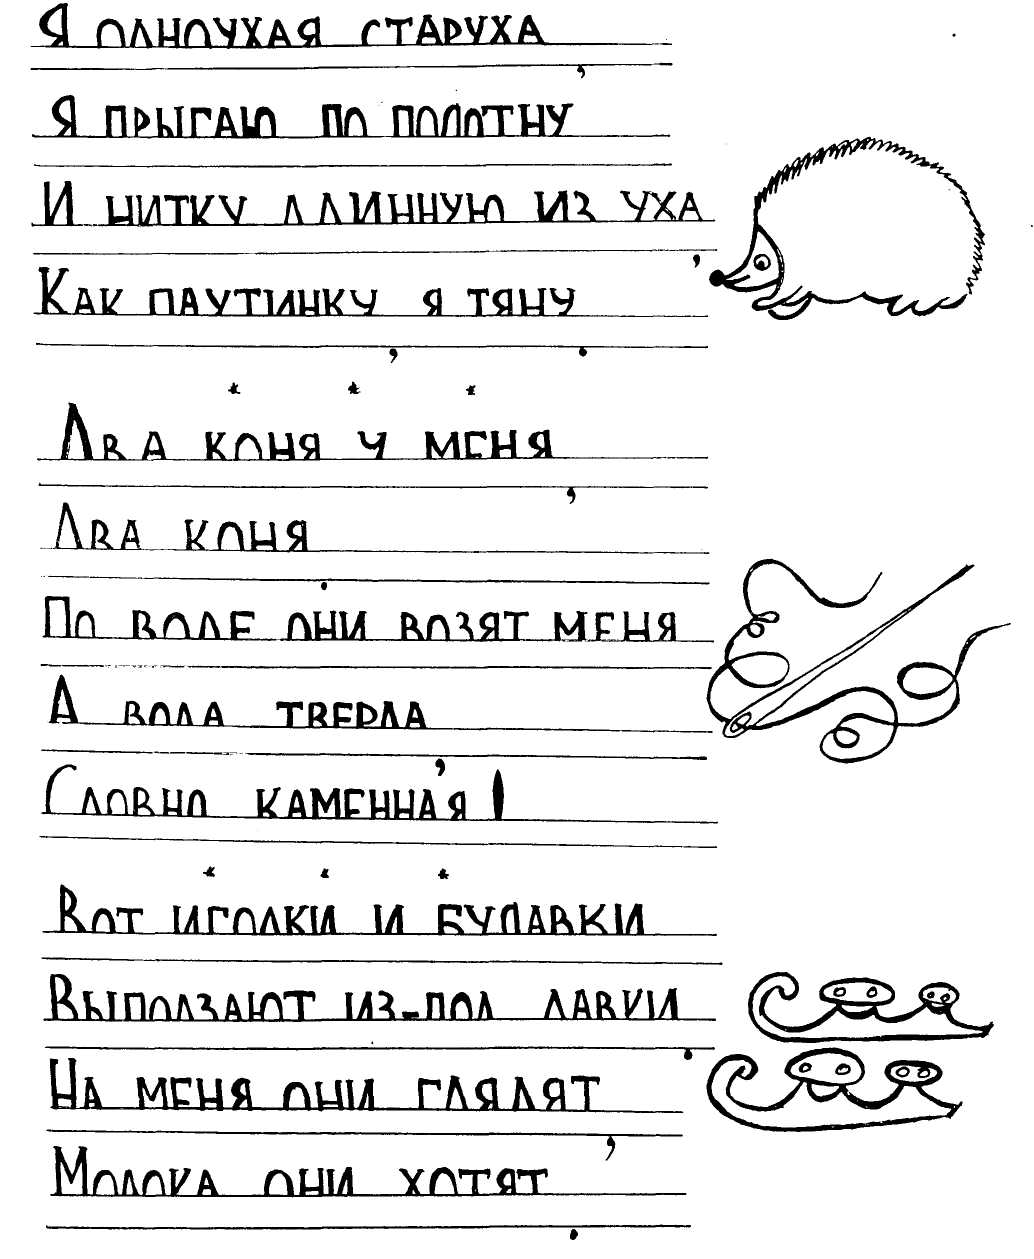 Я одноухая старуха,
Я прыгаю по полотну
И нитку длинную из уха,
Как паутинку, я тяну.
* * *
Два коня у меня,
Два коня.
По воде они возят меня
А вода тверда,
Словно каменная!
* * *
Вот иголки и булавки
Выползают из-под лавки.
На меня они глядят,
Молока они хотят.